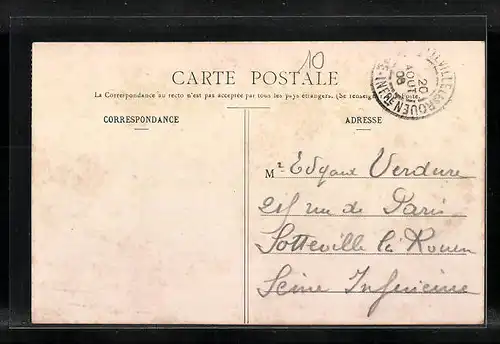 10
CARTE POSTALE
La Correspondance au recto n'est pas acceptée par tous les pays étrangers. (Se renseigner Poste.
CORRESPONDANCE
ADRESSE
TEVILLE-LES-ROUEN
20
AOUT
08
Mr Edgard Verdure
215 rue de Paris
Sotteville lès Rouen
Seine Inferieure